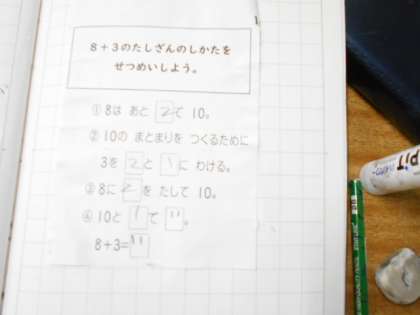 8+3のたしざんのしかたを
せつめいしよう。
①8は あと 2で 10。
②10の まとまりを つくるために
3を 2と 1に わける。
③8に 2を たして 10。
④10と 1で 11。
8+3=11
PiT